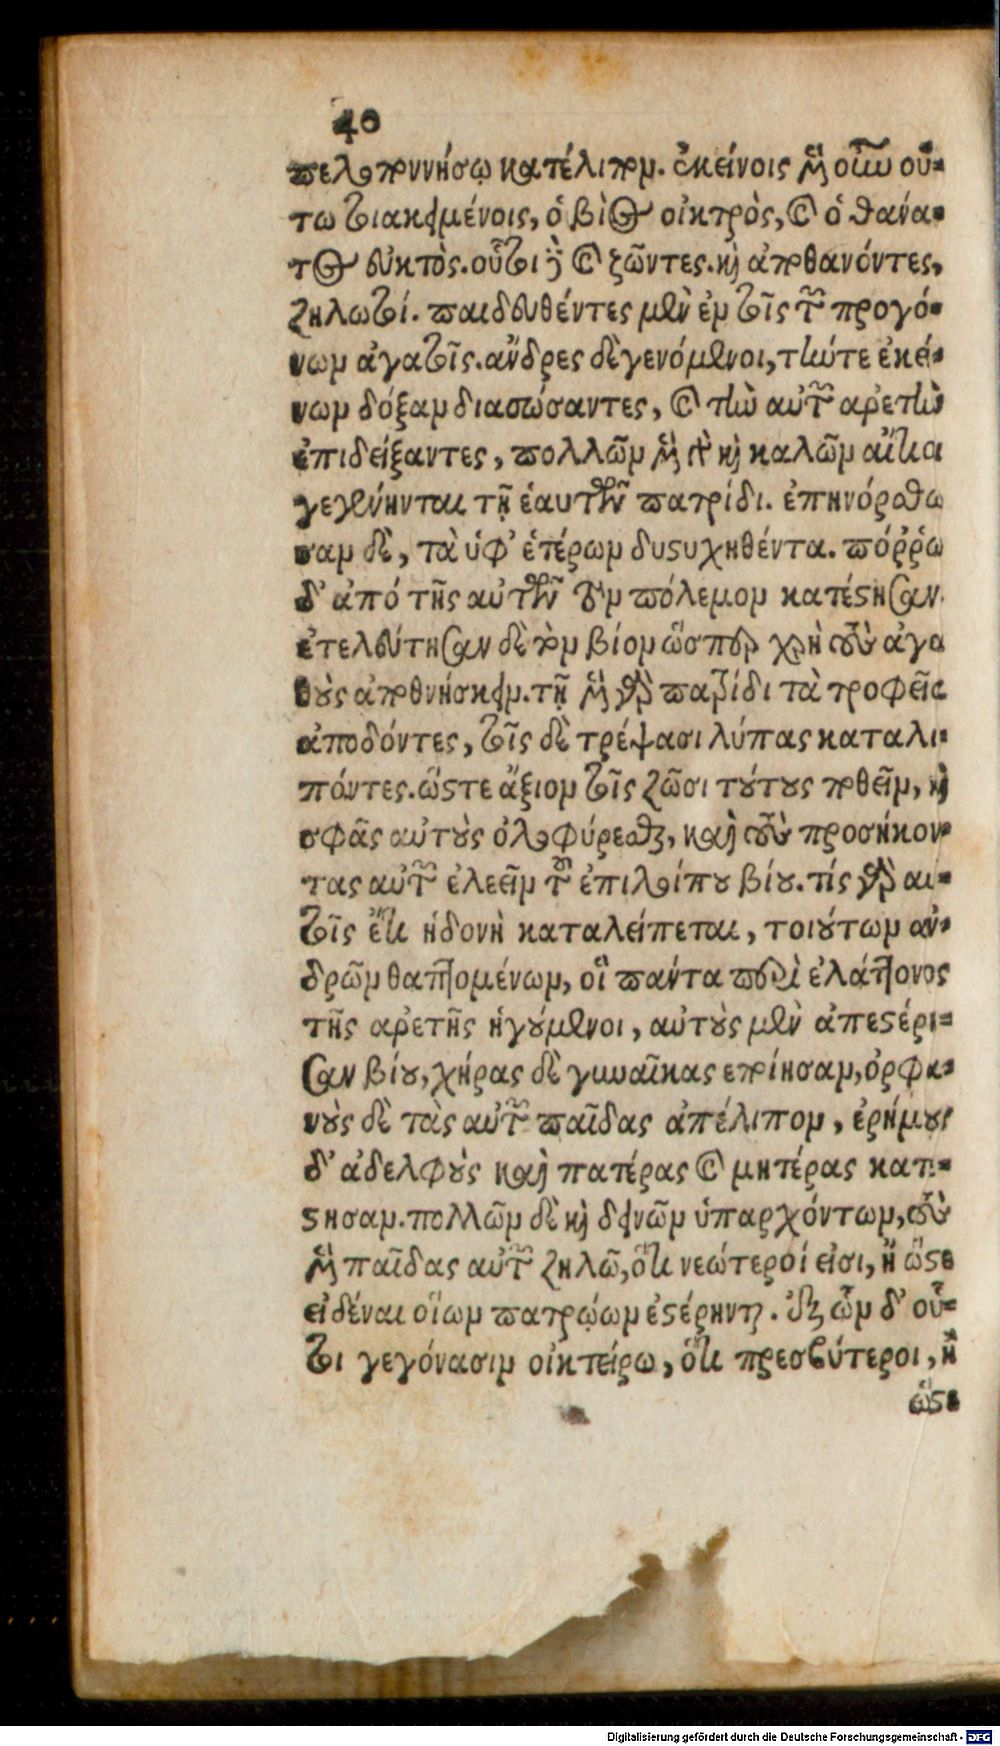 40
πελοποννήσῳ κατέλιπον. ἐκείνοις μὲν οὖν οὕ-
τω διακειμένοις, ὁ βίος οἰκτρὸς, καὶ ὁ θάνα-
τος εὐκτὸς. οὗτοι δὲ καὶ ζῶντες. καὶ ἀποθανόντες,
ζηλωτοί. παιδευθέντες μὲν ἐν τοῖς τῶν προγό-
νων ἀγαθοῖς. ἄνδρες δὲ γενόμενοι, τήντε ἐκεί-
νων δόξαν διασώσαντες, καὶ τὴν αὑτῶν ἀρετὴν
ἐπιδείξαντες, πολλῶν μὲν γὰρ καὶ καλῶν αἴτιοι
γεγένηνται τῇ ἑαυτῶν πατρίδι. ἐπηνόρθω
σαν δὲ, τὰ ὑφ' ἑτέρων δυστυχηθέντα. πόῤῥω
δ' ἀπό τῆς αὑτῶν τὸν πόλεμον κατέστησαν.
ἐτελεύτησαν δὲ τὸν βίον ὥσπερ χρὴ τοὺς ἀγα
θοὺς ἀποθνήσκειν. τῇ μὲν γὰρ πατρίδι τὰ τροφεῖα
ἀποδόντες, τοῖς δὲ τρέψασι λύπας καταλι-
πόντες. ὥστε ἄξιον τοῖς ζῶσι τούτους ποθεῖν, καὶ
σφᾶς αὐτοὺς ὀλοφύρεσθαι, καὶ τοὺς προσήκον-
τας αὐτῶν ἐλεεῖν τοῦ ἐπιλοίπου βίου. τίς γὰρ αυ-
τοῖς ἔτι ἡδονὴ καταλείπεται, τοιούτων ἀν-
δρῶν θαπτομένων, οἳ πάντα περὶ ἐλάττονος
τῆς ἀρετῆς ἡγούμενοι, αὐτοὺς μὲν ἀπεστέρη-
σαν βίου, χήρας δὲ γυναῖκας εποίησαν, ὀρφα-
νοὺς δὲ τὰς αὑτῶν παῖδας ἀπέλιπον, ἐρήμους
δ' ἀδελφοὺς καὶ πατέρας καὶ μητέρας κατέ-
στησαν. πολλῶν δὲ καὶ δεινῶν ὑπαρχόντων, τοὺς
μὲν παῖδας αὐτῶν ζηλῶ, ὅτι νεώτεροί εἰσι, ἢ ὥστε
εἰδέναι οἵων πατρῴων ἐστέρηνται. ὑφ' ὧν δ' οὗ-
τοι γεγόνασιν οἰκτείρω, ὅτι πρεσβύτεροι, ἢ
ὥστε
Digitalisierung gefördert durch die Deutsche Forschungsgemeinschaft - DFG